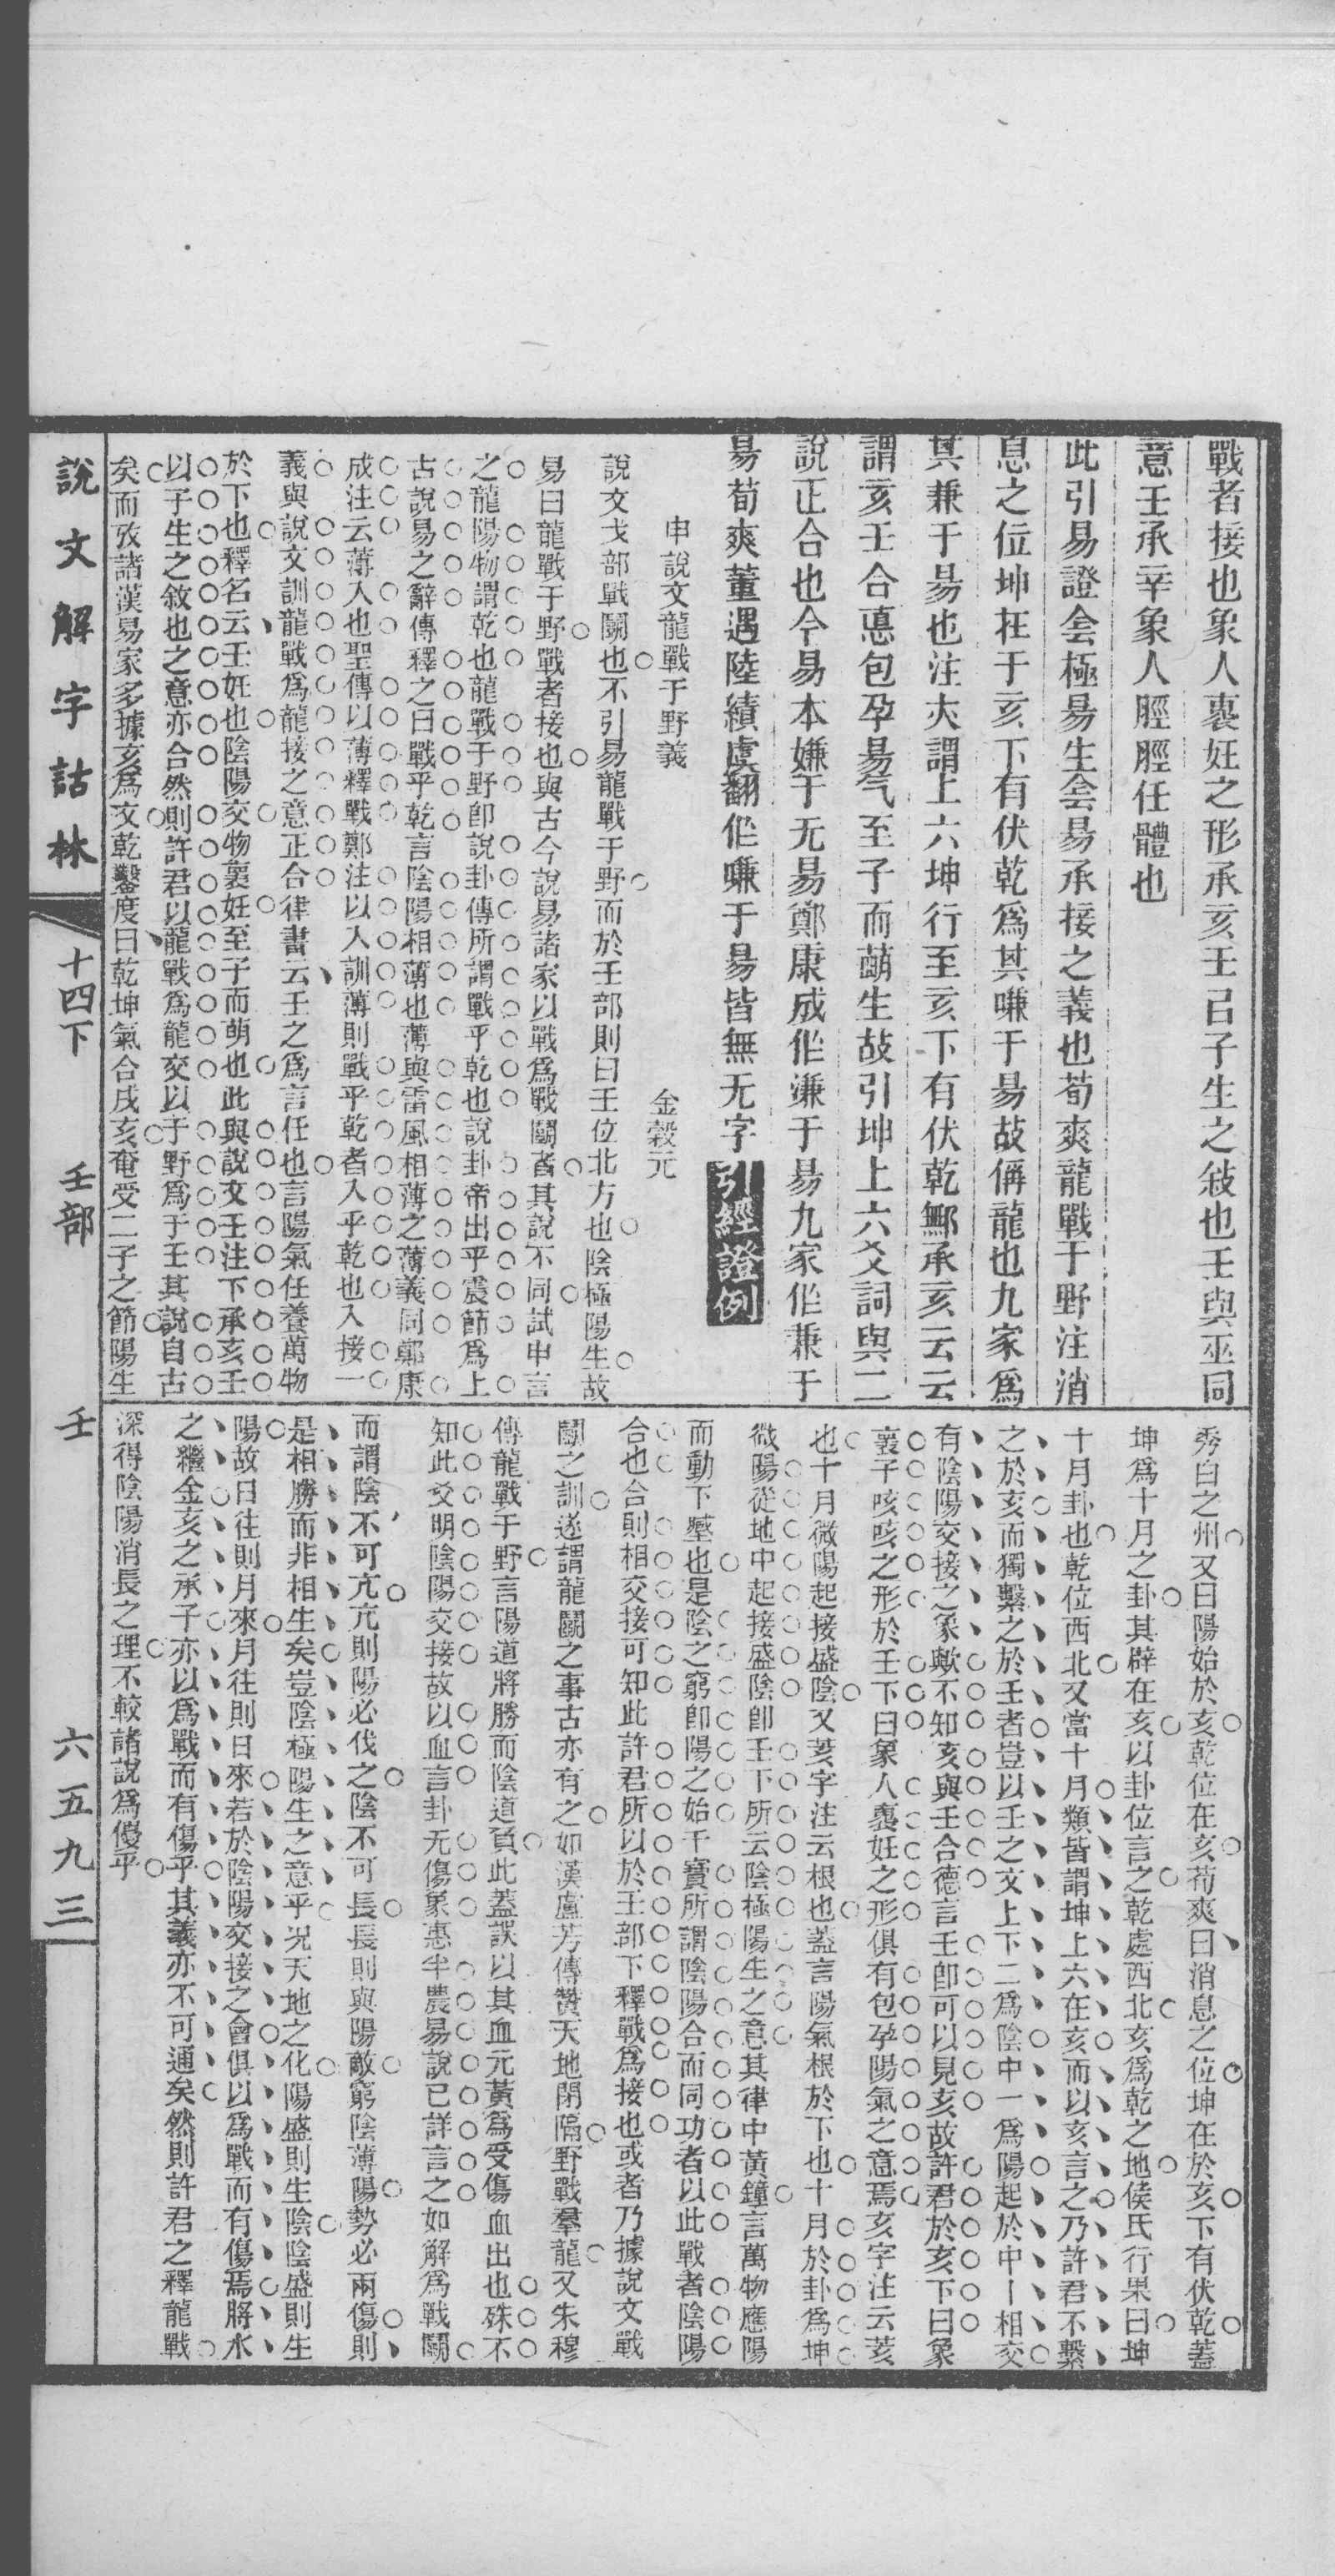 戰者接也象人裹妊之形承亥壬㠯子生之敍也壬與巫同
意壬承辛象人脛脛任體也
此引易證侌極昜生侌昜承接之義也荀爽龍戰于野注消
息之位坤在于亥下有伏乾爲其嗛于昜故偁龍也九家爲
其兼于昜也注夫謂上六坤行至亥下有伏乾鄦承亥云云
謂亥壬合悳包孕昜气至子而萌生故引坤上六爻詞與二
說正合也今易本嫌于无昜鄭康成作溓于昜九家作兼于
昜荀爽董遇陸績虞翻作嗛于昜皆無无字引經證例
申說文龍戰于野義
金榖元
說文戈部戰鬭也不引易龍戰于野而於壬部則曰壬位北方也陰極陽生故
易曰龍戰于野戰者接也與古今說易諸家以戰爲戰鬭者其說不同試申言
之龍陽物謂乾也龍戰于野卽說卦傳所謂戰乎乾也說卦帝出乎震節爲上
古說易之辭傳釋之曰戰乎乾言陰陽相薄也薄與雷風相薄之薄義同鄭康
成注云薄入也聖傳以薄釋戰鄭注以入訓薄則戰乎乾者入乎乾也入接一
義與說文訓龍戰爲龍接之意正合律書云壬之爲言任也言陽氣任養萬物
於下也釋名云壬妊也陰陽交物裏妊至子而萌也此與說文壬注下承亥壬
以子生之敘也之意亦合然則許君以龍戰爲龍交以于野爲于壬其說自古
矣而攷諸漢易家多據亥爲文乾鑿度曰乾坤氣合戌亥奄受二子之節陽生
秀白之州又曰陽始於亥乾位在亥荀爽曰消息之位坤在於亥下有伏乾蓋
坤爲十月之卦其辟在亥以卦位言之乾處西北亥爲乾之地侯氏行果曰坤
十月卦也乾位西北又當十月類皆謂坤上六在亥而以亥言之乃許君不繫
之於亥而獨繫之於壬者豈以壬之文上下二爲陰中一爲陽起於中丨相交
有陰陽交接之象歟不知亥與壬合德言壬卽可以見亥故許君於亥下曰象
裹子咳咳之形於壬下曰象人裹妊之形俱有包孕陽氣之意焉亥字注云荄
也十月微陽起接盛陰又荄字注云根也蓋言陽氣根於下也十月於卦爲坤
微陽從地中起接盛陰卽壬下所云陰極陽生之意其律中黃鐘言萬物應陽
而動下壓也是陰之窮卽陽之始干寶所謂陰陽合而同功者以此戰者陰陽
合也合則相交接可知此許君所以於壬部下釋戰爲接也或者乃據說文戰
鬭之訓遂謂龍鬭之事古亦有之如漢盧芳傳贊天地閉隔野戰羣龍又朱穆
傳龍戰于野言陽道將勝而陰道負此蓋誤以其血元黃爲受傷血出也殊不
知此爻明陰陽交接故以血言卦无傷象惠半農易說已詳言之如解爲戰鬭
而謂陰不可亢亢則陽必伐之陰不可長長則與陽敵窮陰薄陽勢必兩傷則
是相勝而非相生矣豈陰極陽生之意乎況天地之化陽盛則生陰陰盛則生
陽故日往則月來月往則日來若於陰陽交接之會俱以爲戰而有傷焉將水
之繼金亥之承子亦以爲戰而有傷乎其義亦不可通矣然則許君之釋龍戰
深得陰陽消長之理不較諸說爲優乎
說文解字詁林
十四下
壬部
壬
六五九三